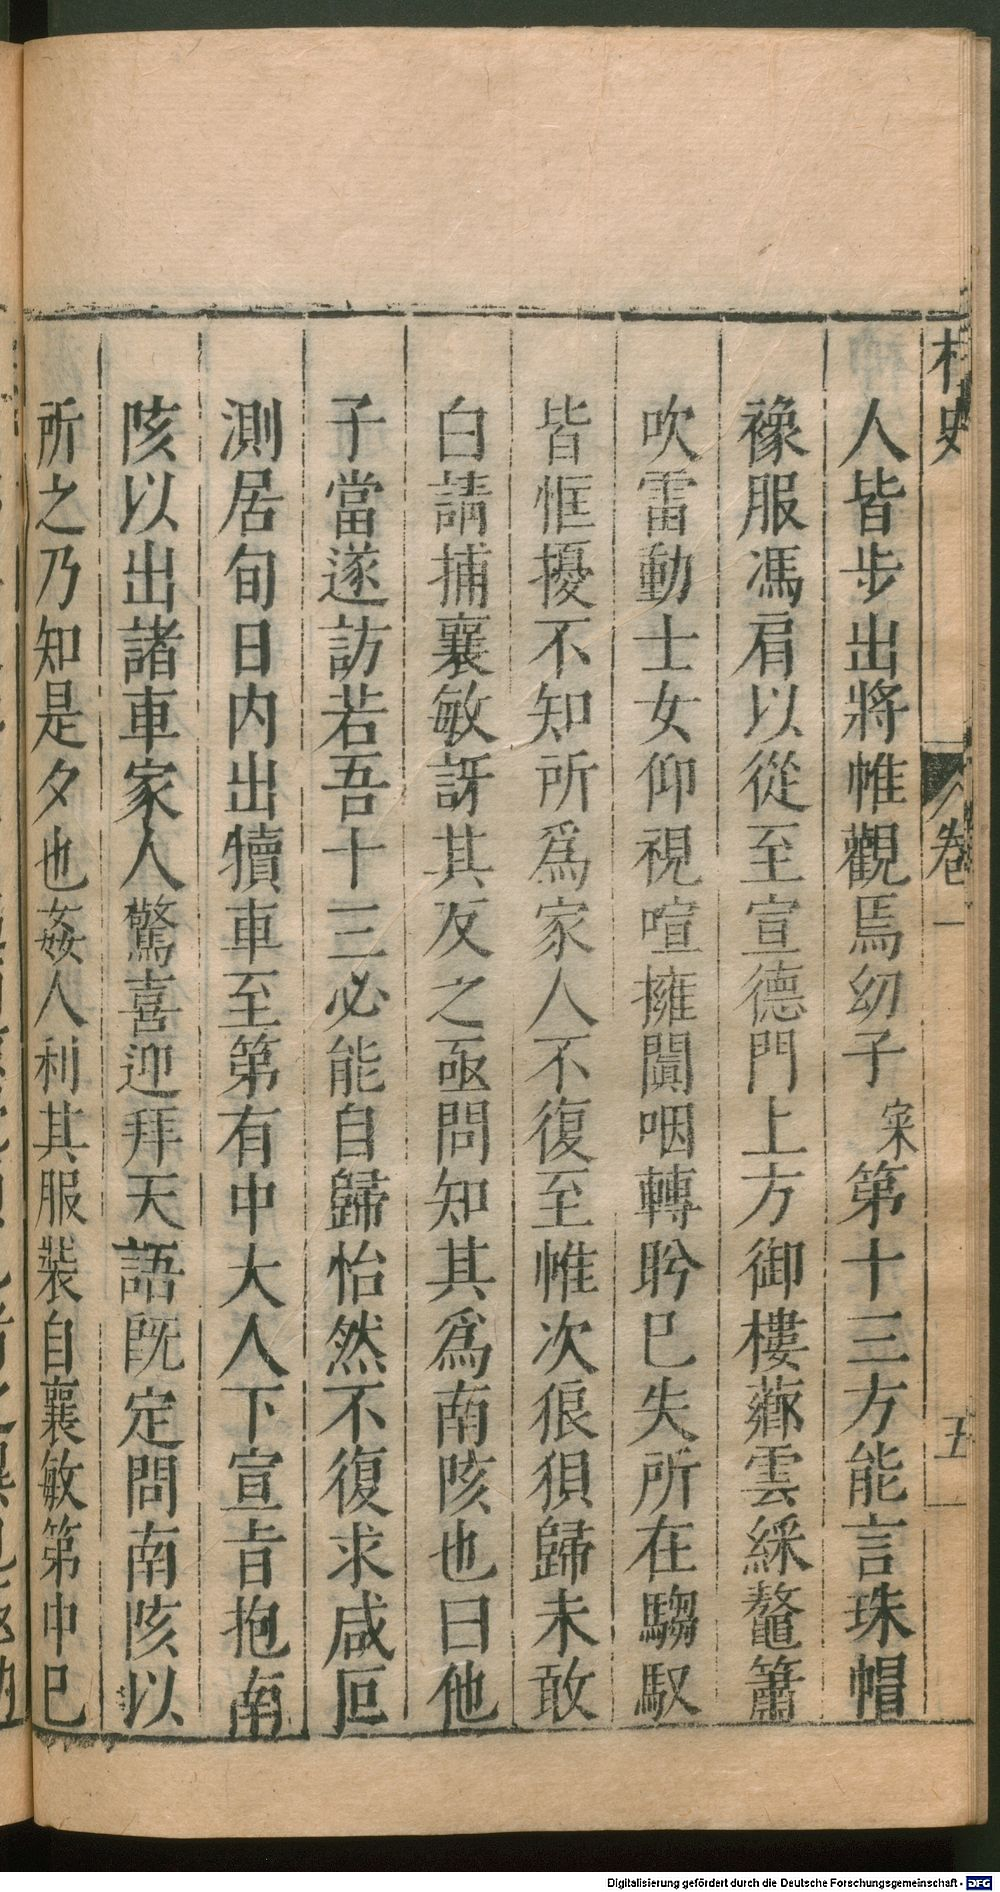 桯史
卷一
五
人皆步出將帷觀焉幼子宷第十三方能言珠帽
襐服馮肩以從至宣德門上方御樓薌雲綵鼇簫
吹雷動士女仰視喧擁闐咽轉盻已失所在騶馭
皆恇擾不知所爲家人不復至帷次狼狽歸未敢
白請捕襄敏訝其反之亟問知其爲南陔也曰他
子當遂訪若吾十三必能自歸怡然不復求咸叵
測居旬日内出犢車至第有中大人下宣㫖抱南
陔以出諸車家人驚喜迎拜天語既定問南陔以
所之乃知是夕也姦人利其服裝自襄敏第中已
Digitalisierung gefördert durch die Deutsche Forschungsgemeinschaft - DFG